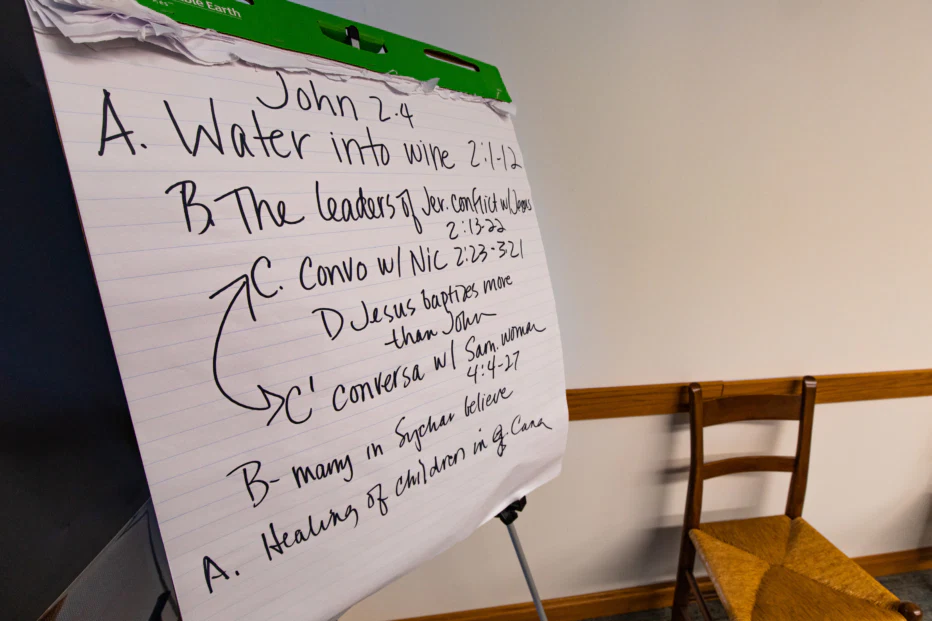 ble Earth
John 2.4
A. Water into wine 2:1-12
B. The leaders of Jer. conflict w/ Jesus
2:13-22
C. Convo w/ Nic 2:23-3:21
D Jesus baptizes more
than John
C' conversa w/ Sam. woman
4:4-27
B- many in Sychar believe
A. Healing of children in Cana